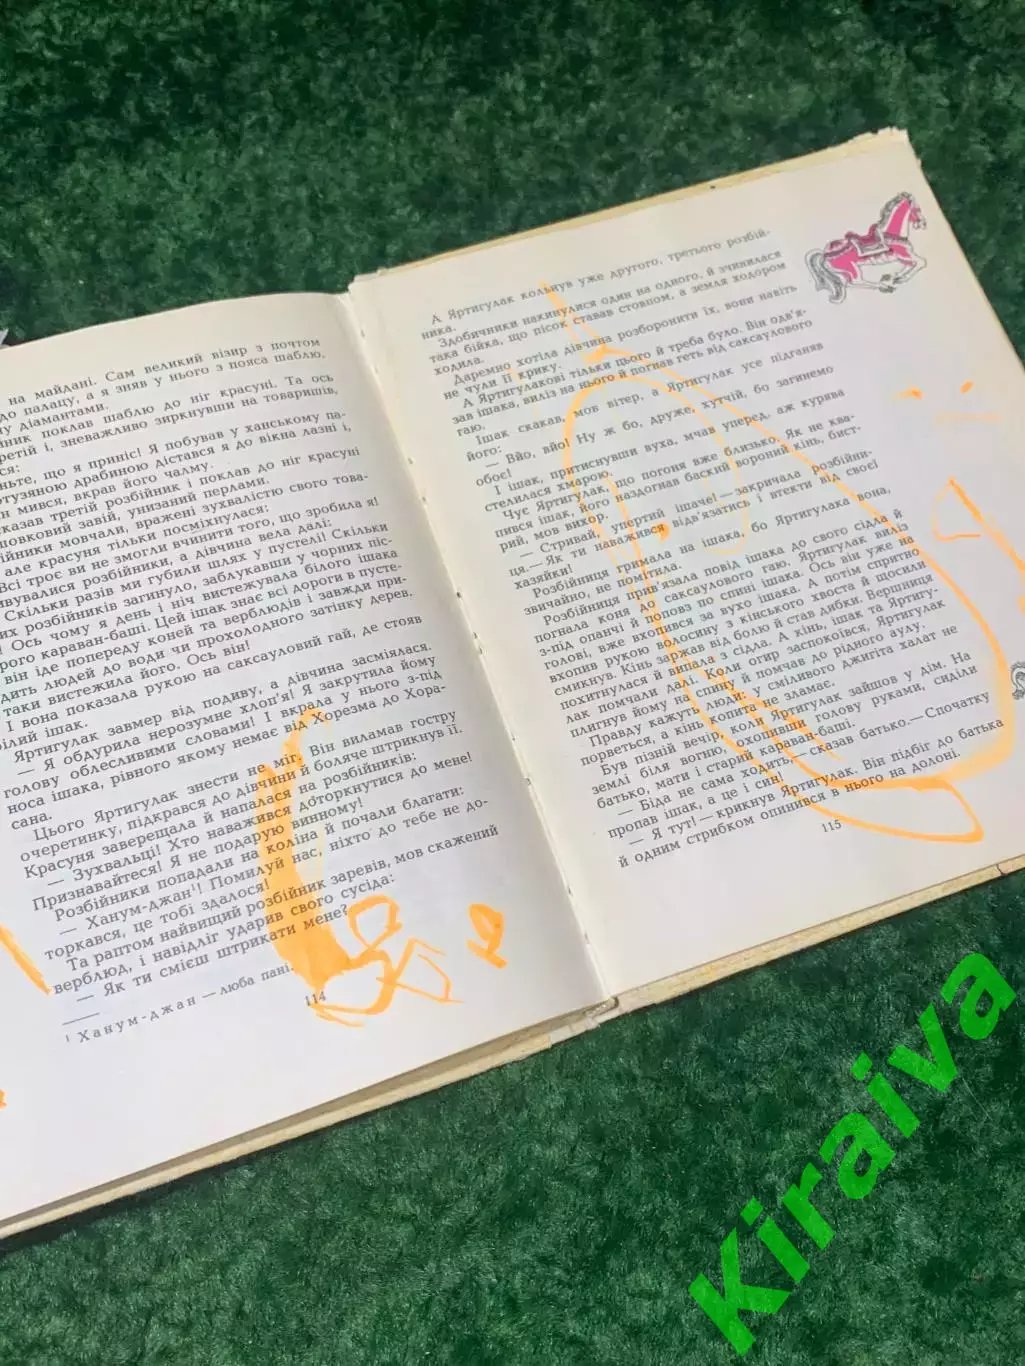 на майдані. Сам великий візир з почтом
до палацу, а я зняв у нього з пояса шаблю,
у діамантами.
ник поклав шаблю до ніг красуні. Та ось
ретій і, зневажливо зиркнувши на товаришів,
ся:
ньте, що я приніс! Я побував у ханському па-
отузяною драбиною дістався я до вікна лазні і,
н мився, вкрав його чалму.
сказав третій розбійник і поклав до ніг красуні
шовковий завій, унизаний перлами.
бійники мовчали, вражені зухвалістю свого това-
але красуня тільки посміхнулася:
Всі троє ви не змогли вчинити того, що зробила я!
ивувалися розбійники, а дівчина вела далі:
Скільки разів ми губили шлях у пустелі! Скільки
их розбійників загинуло, заблукавши у чорних піс-
! Ось чому я день і ніч вистежувала білого ішака
рого караван-баші. Цей ішак знає всі дороги в пусте-
він іде попереду коней та верблюдів і завжди при-
дить людей до води чи прохолодного затінку дерев.
таки вистежила його. Ось він!
І вона показала рукою на саксауловий гай, де стояв
білий ішак.
Яртигулак завмер від подиву, а дівчина засміялася.
— Я обдурила нерозумне хлоп'я! Я закрутила йому
голову облесливими словами! І вкрала у нього з-під
носа ішака, рівного якому немає від Хорезма до Хора-
сана.
Цього Яртигулак знести не міг. Він виламав гостру
очеретинку, підкрався до дівчини й боляче штрикнув її.
Красуня заверещала й напалася на розбійників:
— Зухвальці! Хто наважився доторкнутися до мене!
Признавайтеся! Я не подарую винному!
Розбійники попадали на коліна й почали благати:
— Ханум-джан¹! Помилуй нас, ніхто до тебе не до-
торкався, це тобі здалося!
Та раптом найвищий розбійник заревів, мов скажений
верблюд, і навідліг ударив свого сусіда:
— Як ти смієш штрикати мене?
¹ Ханум-джан — люба пані.
114
А Яртигулак кольнув уже другого, третього розбій-
ника.
Здобичники накинулися один на одного, й зчинилася
така бійка, що пісок ставав стовпом, а земля ходором
ходила.
Даремно хотіла дівчина розборонити їх, вони навіть
не чули її крику.
А Яртигулакові тільки цього й треба було. Він одв'я-
зав ішака, виліз на нього й погнав геть від саксаулового
гаю.
Ішак скакав, мов вітер, а Яртигулак усе підганяв
його:
— Вйо, вйо! Ну ж бо, друже, хутчій, бо загинемо
обоє!
І ішак, притиснувши вуха, мчав уперед, аж курява
стелилася хмарою.
Чує Яртигулак, що погоня вже близько. Як не ква-
пився ішак, його наздогнав баский вороний кінь, бист-
рий, мов вихор.
— Стривай, упертий ішаче! — закричала розбійни-
ця.— Як ти наважився відв'язатись і втекти від своєї
хазяйки!
Розбійниця гримала на ішака, бо Яртигулака вона,
звичайно, не помітила.
Розбійниця прив'язала повід ішака до свого сідла й
погнала коня до саксаулового гаю. Яртигулак виліз
з-під опанчі й поповз по спині ішака. Ось він уже на
голові, вже вхопився за вухо ішака. А потім спритно
вхопив рукою волосину з кінського хвоста й щосили
смикнув. Кінь заржав від болю й став дибки. Вершниця
похитнулася й випала з сідла. А кінь, ішак та Яртигу-
лак помчали далі. Коли огир заспокоївся, Яртигулак
плигнув йому на спину й помчав до рідного аулу.
Правду кажуть люди: у сміливого джигіта халат не
порветься, а кінь копита не зламає.
Був пізній вечір, коли Яртигулак зайшов у дім. На
землі біля вогню, охопивши голову руками, сиділи
батько, мати і старий караван-баші.
— Біда не сама ходить,— сказав батько.— Спочатку
пропав ішак, а це і син!
— Я тут! — крикнув Яртигулак. Він підбіг до батька
й одним стрибком опинився в нього на долоні.
115
Kiraiva